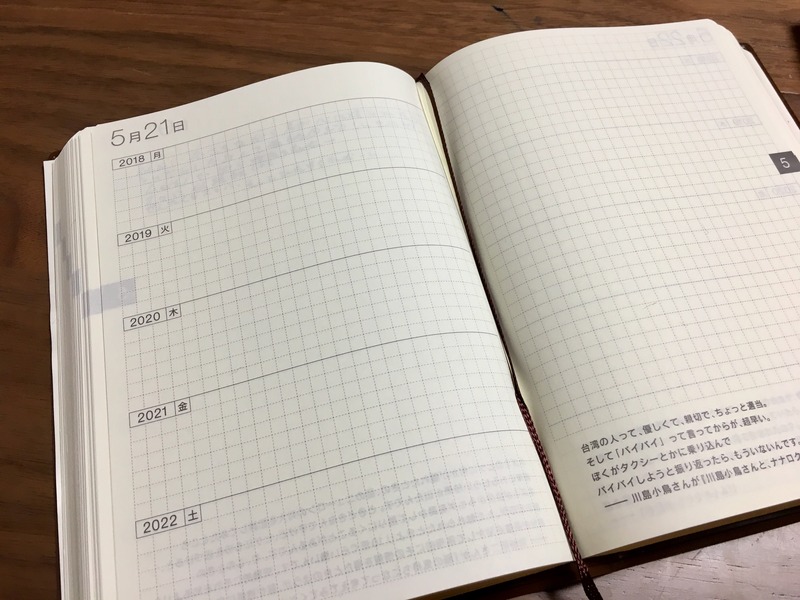 5月21日
2018 月
2019 火
2020 木
2021 金
2022 土
5
台湾の人って、優しくて、親切で、ちょっと適当。
そして「バイバイ」って言ってからが、超早い。
ぼくがタクシーとかに乗り込んで
バイバイしようと振り返ったら、もういないんです。
—— 川島小鳥さんが『川島小鳥さんと、ナナロク